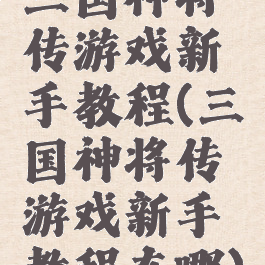 三国神将
传游戏新
手教程(三
国神将传
游戏新手
教程有哪)